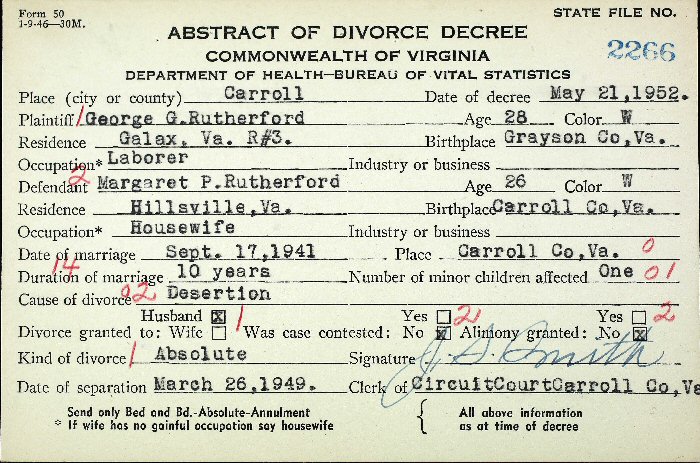 Form 50
1-9-46—30M.
STATE FILE NO.
ABSTRACT OF DIVORCE DECREE
2266
COMMONWEALTH OF VIRGINIA
DEPARTMENT OF HEALTH—BUREAU OF VITAL STATISTICS
Place (city or county) Carroll Date of decree May 21,1952.
Plaintiff 1 George G.Rutherford Age 28 Color W
Residence Galax, Va. R#3. Birthplace Grayson Co,Va.
Occupation* Laborer Industry or business
Defendant 2 Margaret P.Rutherford Age 26 Color W
Residence Hillsville,Va. Birthplace Carroll Co,Va.
Occupation* Housewife Industry or business
Date of marriage Sept. 17,1941 Place Carroll Co,Va. 0
Duration of marriage 14 10 years Number of minor children affected One 01
Cause of divorce 02 Desertion
Husband X Yes 2 Yes 2
Divorce granted to: Wife 1 Was case contested: No X Alimony granted: No X
Kind of divorce 1 Absolute Signature J. S. Smith
Date of separation March 26,1949. Clerk of CircuitCourtCarroll Co,Va
Send only Bed and Bd.-Absolute-Annulment { All above information
* If wife has no gainful occupation say housewife as at time of decree